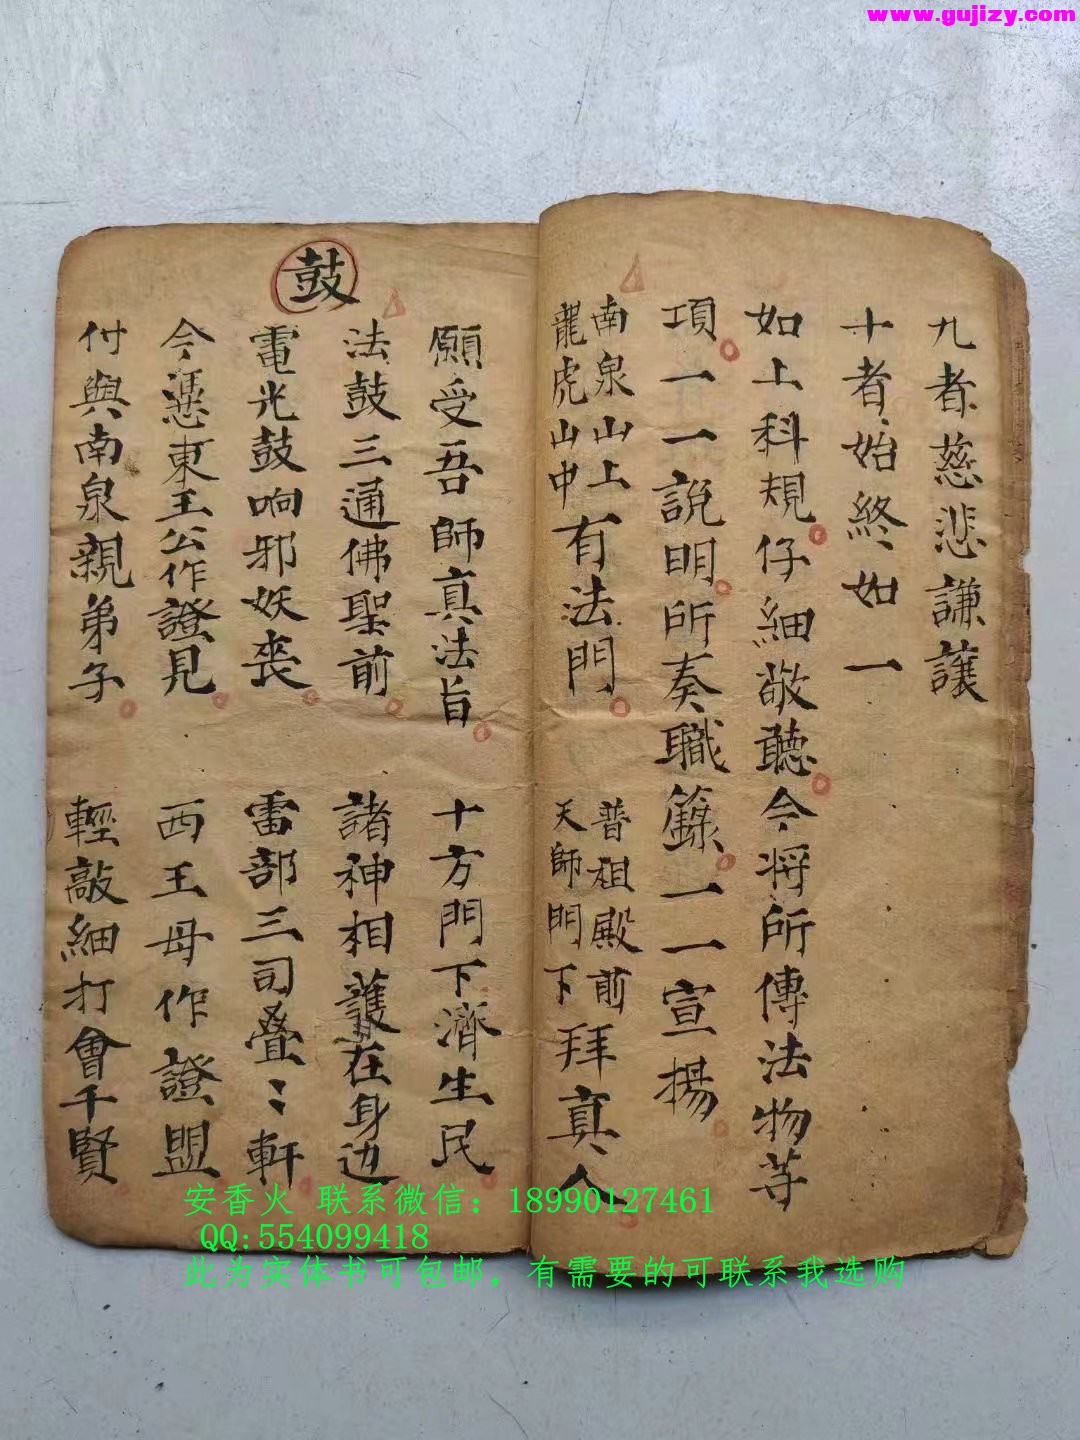 www.gujizy.com
九者慈悲謙讓
十者始終如一
如上科規仔細敬聽今將所傳法物等
項一一說明所奏職籙一一宣揚
南泉山上
龍虎山中
有法門
普祖殿前
天師門下
拜真人
願受吾師真法旨 十方門下濟生民
鼓
法鼓三通佛聖前 諸神相護在身边
電光鼓响邪妖丧 雷部三司叠〻軒
今憑東王公作證見 西王母作證盟
付與南泉親弟子 輕敲細打會千賢
安香火 联系微信：18990127461
QQ:554099418
此为实体书可包邮，有需要的可联系我选购